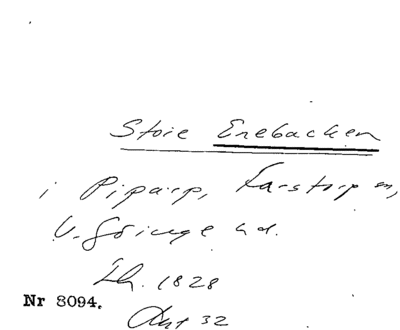 Store Enebacken
i Piparp, Farstorp sn,
V. Göinge hd.
Lh. 1828
Nr 8094.
Akt 32